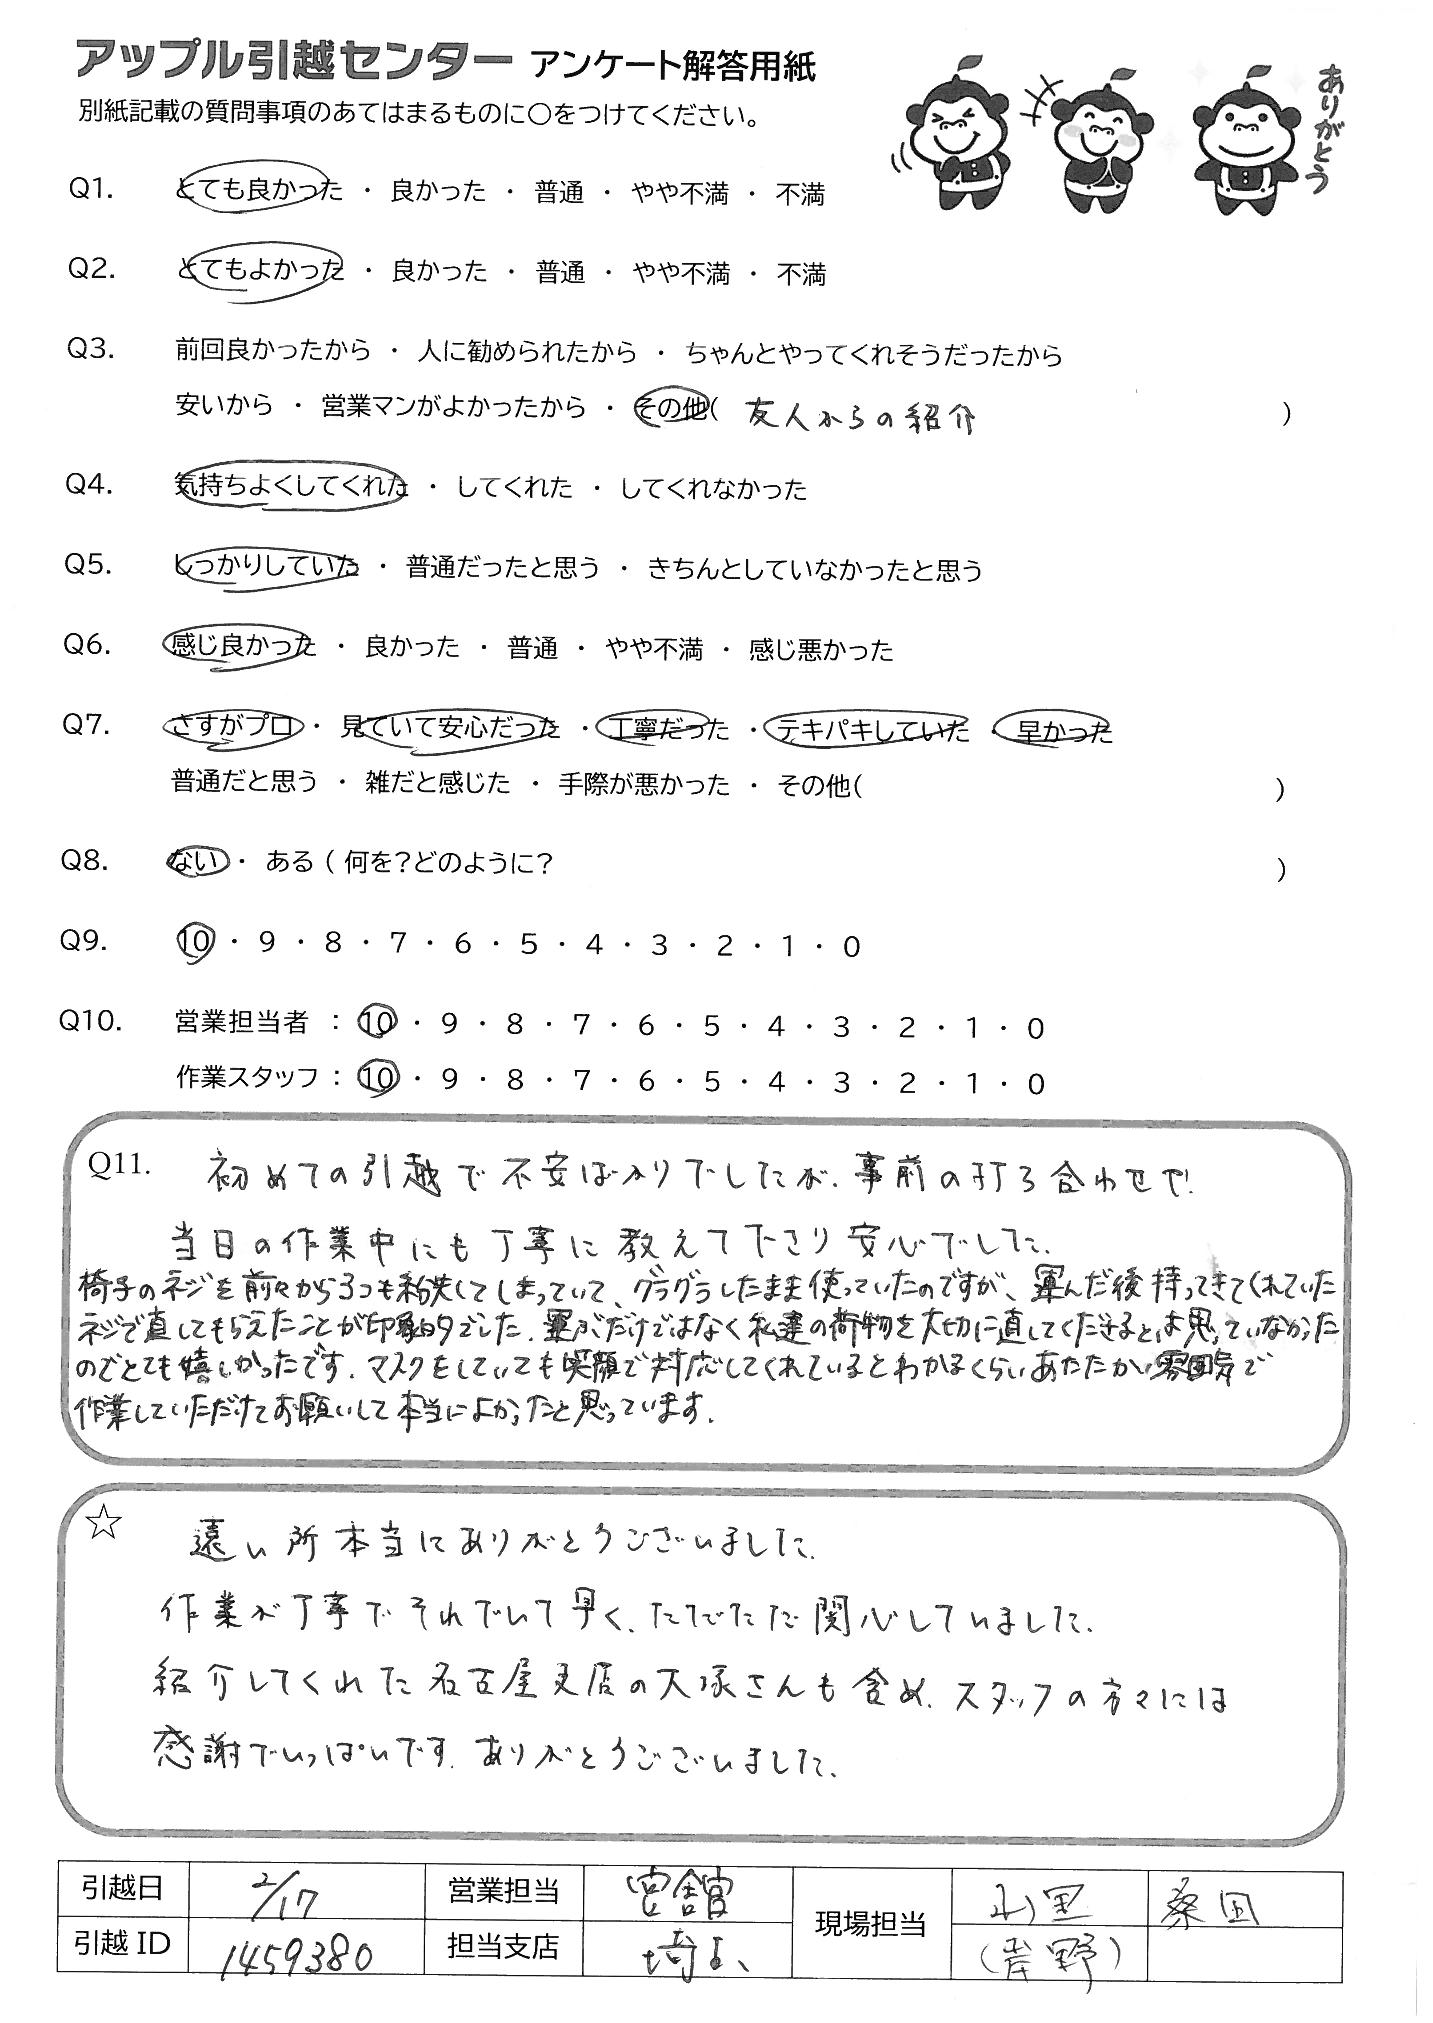 アップル引越センター アンケート解答用紙
別紙記載の質問事項のあてはまるものに○をつけてください。
ありがとう
Q1. とても良かった ・ 良かった ・ 普通 ・ やや不満 ・ 不満
Q2. とてもよかった ・ 良かった ・ 普通 ・ やや不満 ・ 不満
Q3. 前回良かったから ・ 人に勧められたから ・ ちゃんとやってくれそうだったから
安いから ・ 営業マンがよかったから ・ その他( 友人からの紹介 )
Q4. 気持ちよくしてくれた ・ してくれた ・ してくれなかった
Q5. しっかりしていた ・ 普通だったと思う ・ きちんとしていなかったと思う
Q6. 感じ良かった ・ 良かった ・ 普通 ・ やや不満 ・ 感じ悪かった
Q7. さすがプロ ・ 見ていて安心だった ・ 丁寧だった ・ テキパキしていた ・ 早かった
普通だと思う ・ 雑だと感じた ・ 手際が悪かった ・ その他( )
Q8. ない ・ ある ( 何を?どのように? )
Q9. 10 ・ 9 ・ 8 ・ 7 ・ 6 ・ 5 ・ 4 ・ 3 ・ 2 ・ 1 ・ 0
Q10. 営業担当者 : 10 ・ 9 ・ 8 ・ 7 ・ 6 ・ 5 ・ 4 ・ 3 ・ 2 ・ 1 ・ 0
作業スタッフ : 10 ・ 9 ・ 8 ・ 7 ・ 6 ・ 5 ・ 4 ・ 3 ・ 2 ・ 1 ・ 0
Q11. 初めての引越で不安ばかりでしたが、事前の打ち合わせや
当日の作業中にも丁寧に教えて下さり安心でした。
椅子のネジを前々から3つも紛失してしまっていて、グラグラしたまま使っていたのですが、運んだ後持ってきてくれていた
ネジで直してもらえたことが印象的でした。運ぶだけではなく私達の荷物を大切に直してくださるとは思っていなかった
のでとても嬉しかったです。マスクをしていても笑顔で対応してくれているとわかるくらいあたたかい雰囲気で
作業していただけてお願いして本当によかったと思っています。
☆ 遠い所本当にありがとうございました。
作業が丁寧でそれでいて早く、ただただ関心していました。
紹介してくれた名古屋支店の大塚さんも含め、スタッフの方々には
感謝でいっぱいです。ありがとうございました。
引越日 2/17 営業担当 宮舘 現場担当 小里 桑田
引越ID 1459380 担当支店 埼玉 (岸野)